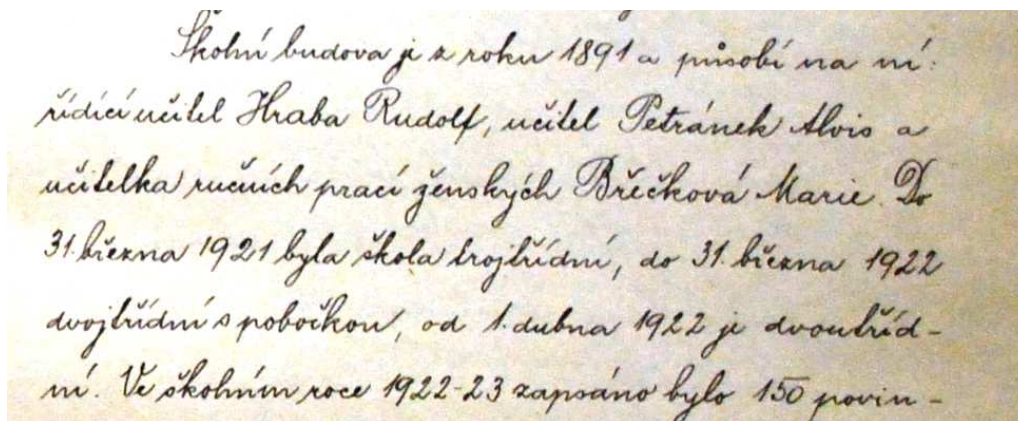 Školní budova je z roku 1891 a působí na ní:
řídící učitel Hraba Rudolf, učitel Petránek Alois a
učitelka ručních prací ženských Břečková Marie. Do
31. března 1921 byla škola trojtřídní, do 31. března 1922
dvojtřídní s pobočkou, od 1. dubna 1922 je dvoutříd-
ní. Ve školním roce 1922-23 zapsáno bylo 150 povin-